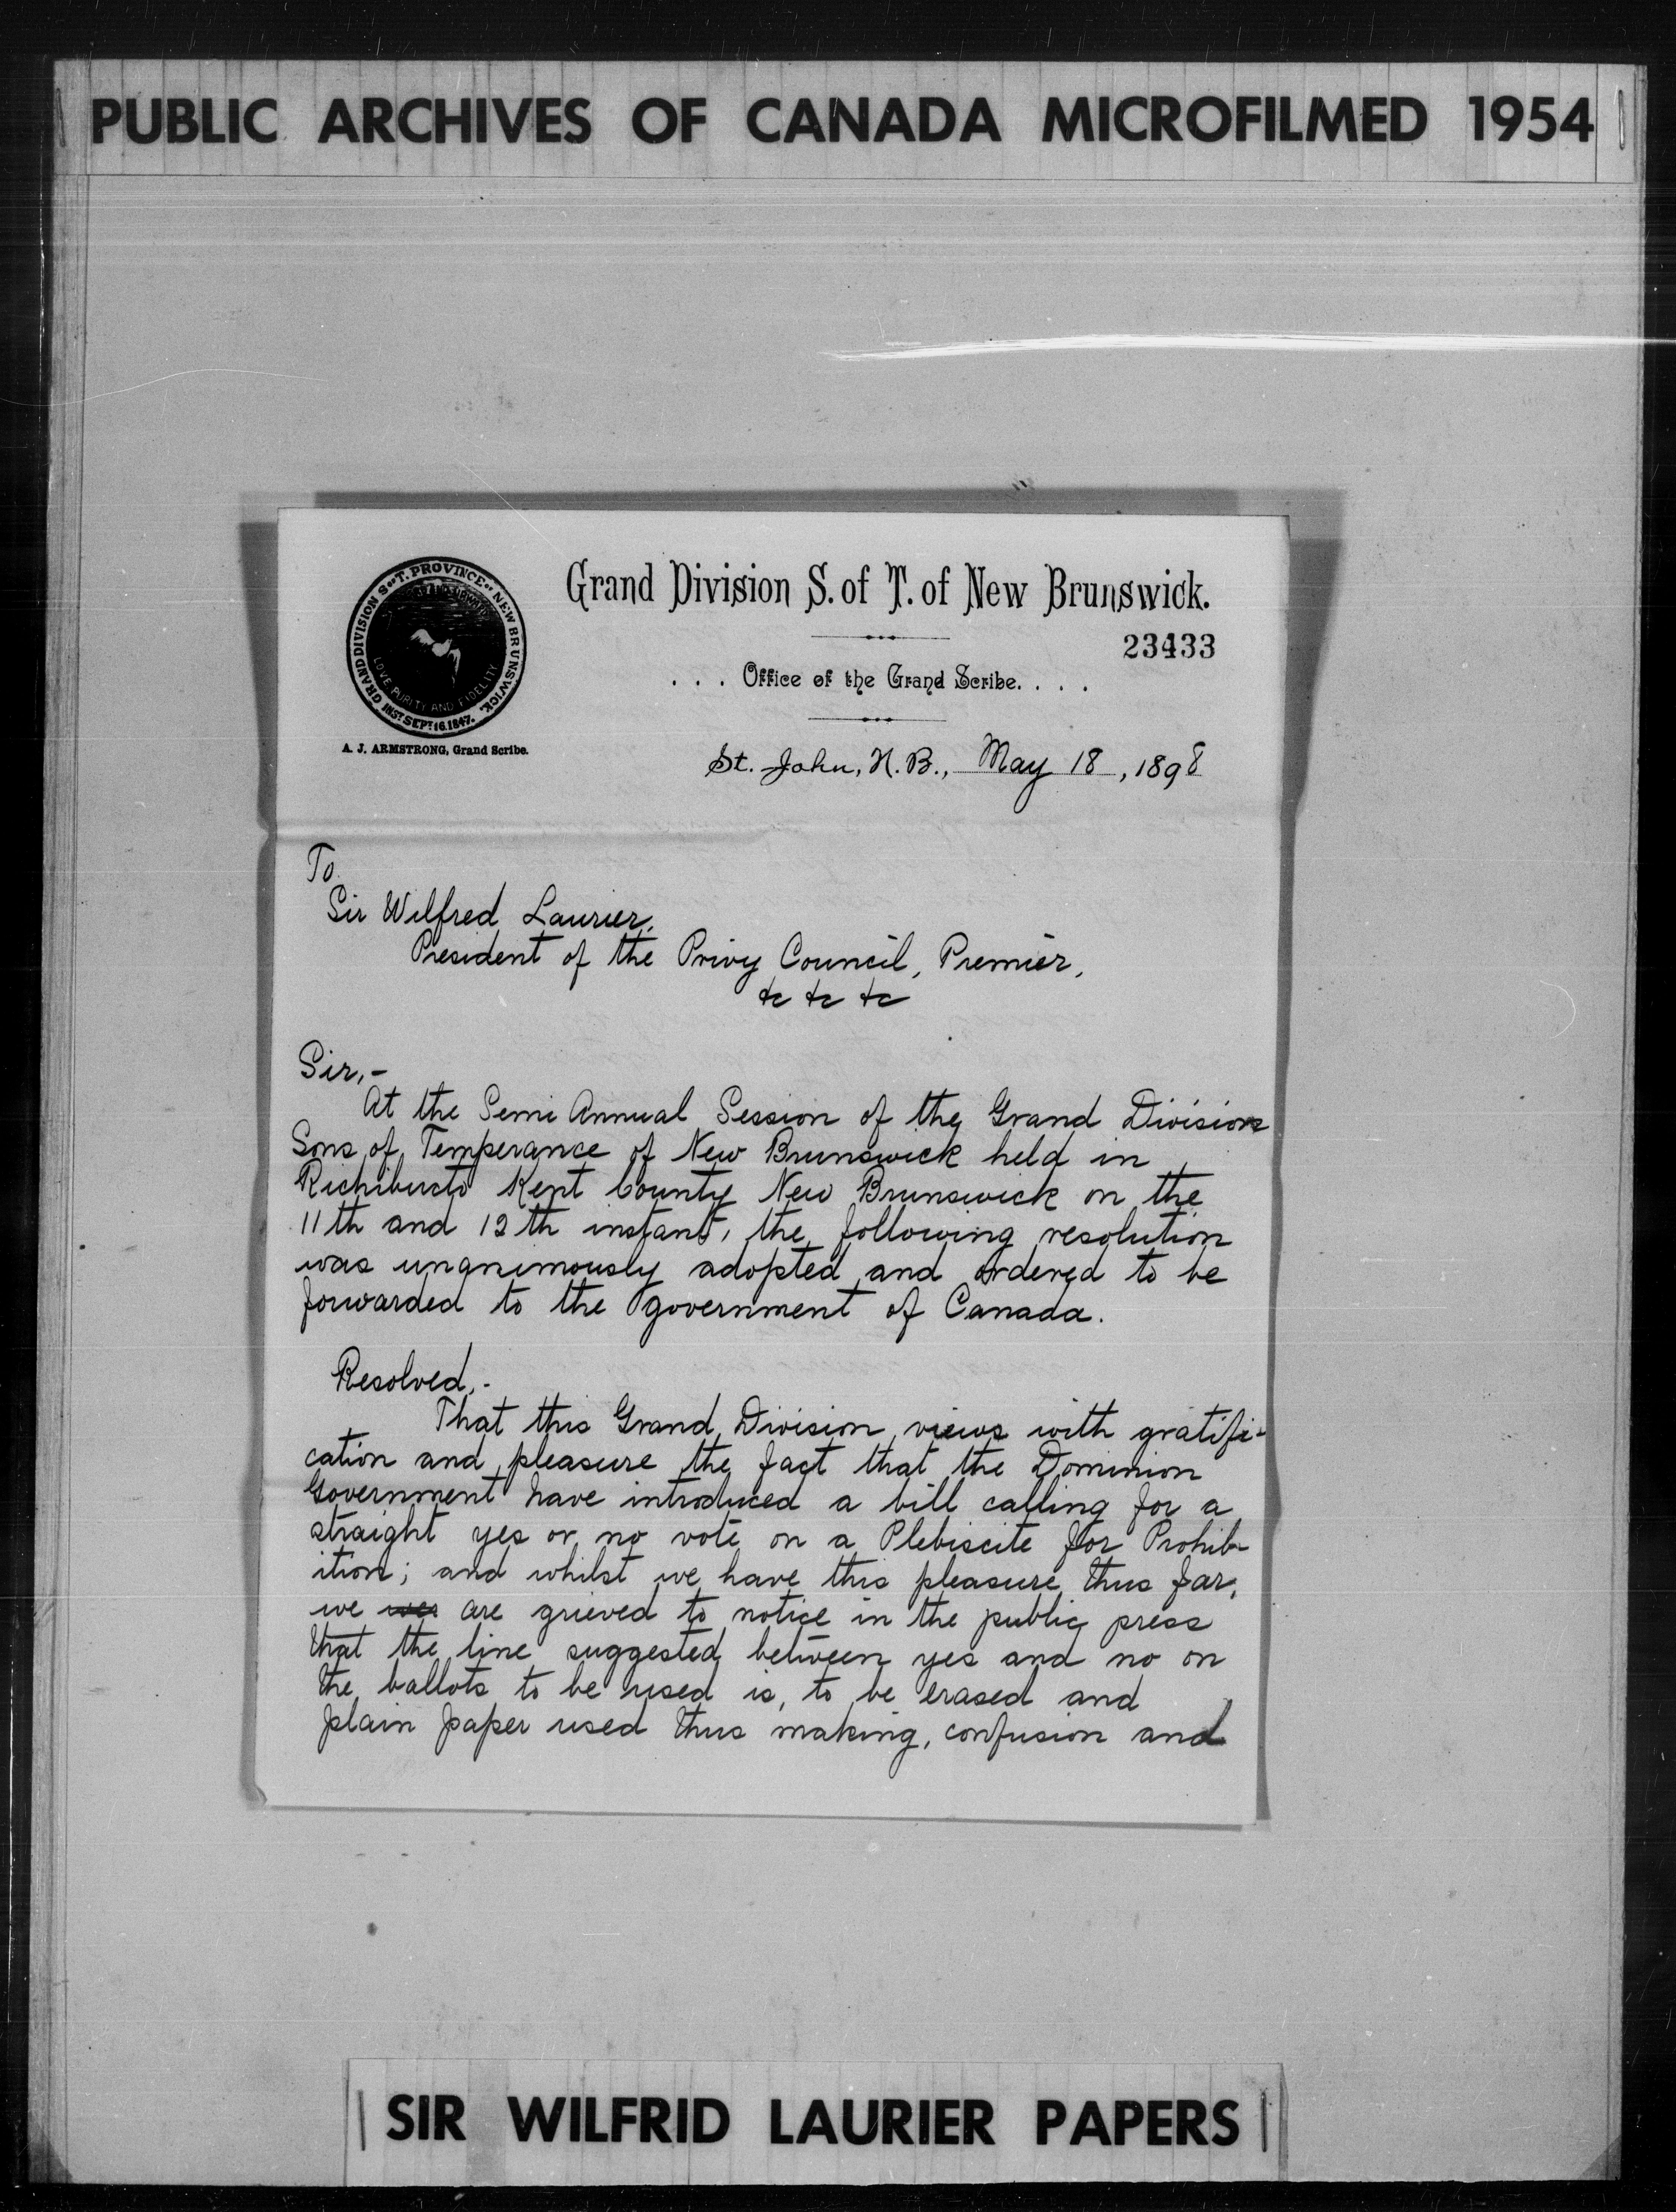 PUBLIC ARCHIVES OF CANADA MICROFILMED 1954
GRAND DIVISION S. OF T. PROVINCE OF NEW BRUNSWICK.
LOVE PURITY AND FIDELITY
INST. SEPT. 16. 1847.
A. J. ARMSTRONG, Grand Scribe.
Grand Division S. of T. of New Brunswick.
23433
. . . Office of the Grand Scribe. . . .
St. John, N. B., May 18, 1898
To
Sir Wilfred Laurier,
President of the Privy Council, Premier,
&c &c &c
Sir,-
At the Semi Annual Session of the Grand Division
Sons of Temperance of New Brunswick held in
Richibucto Kent County New Brunswick on the
11th and 12th instant, the following resolution
was unanimously adopted and ordered to be
forwarded to the government of Canada.
Resolved,-
That this Grand Division views with gratifi-
cation and pleasure the fact that the Dominion
Government have introduced a bill calling for a
straight yes or no vote on a Plebiscite for Prohib-
ition; and whilst we have this pleasure thus far,
we are grieved to notice in the public press
that the line suggested between yes and no on
the ballots to be used is, to be erased and
plain paper used thus making, confusion and
SIR WILFRID LAURIER PAPERS